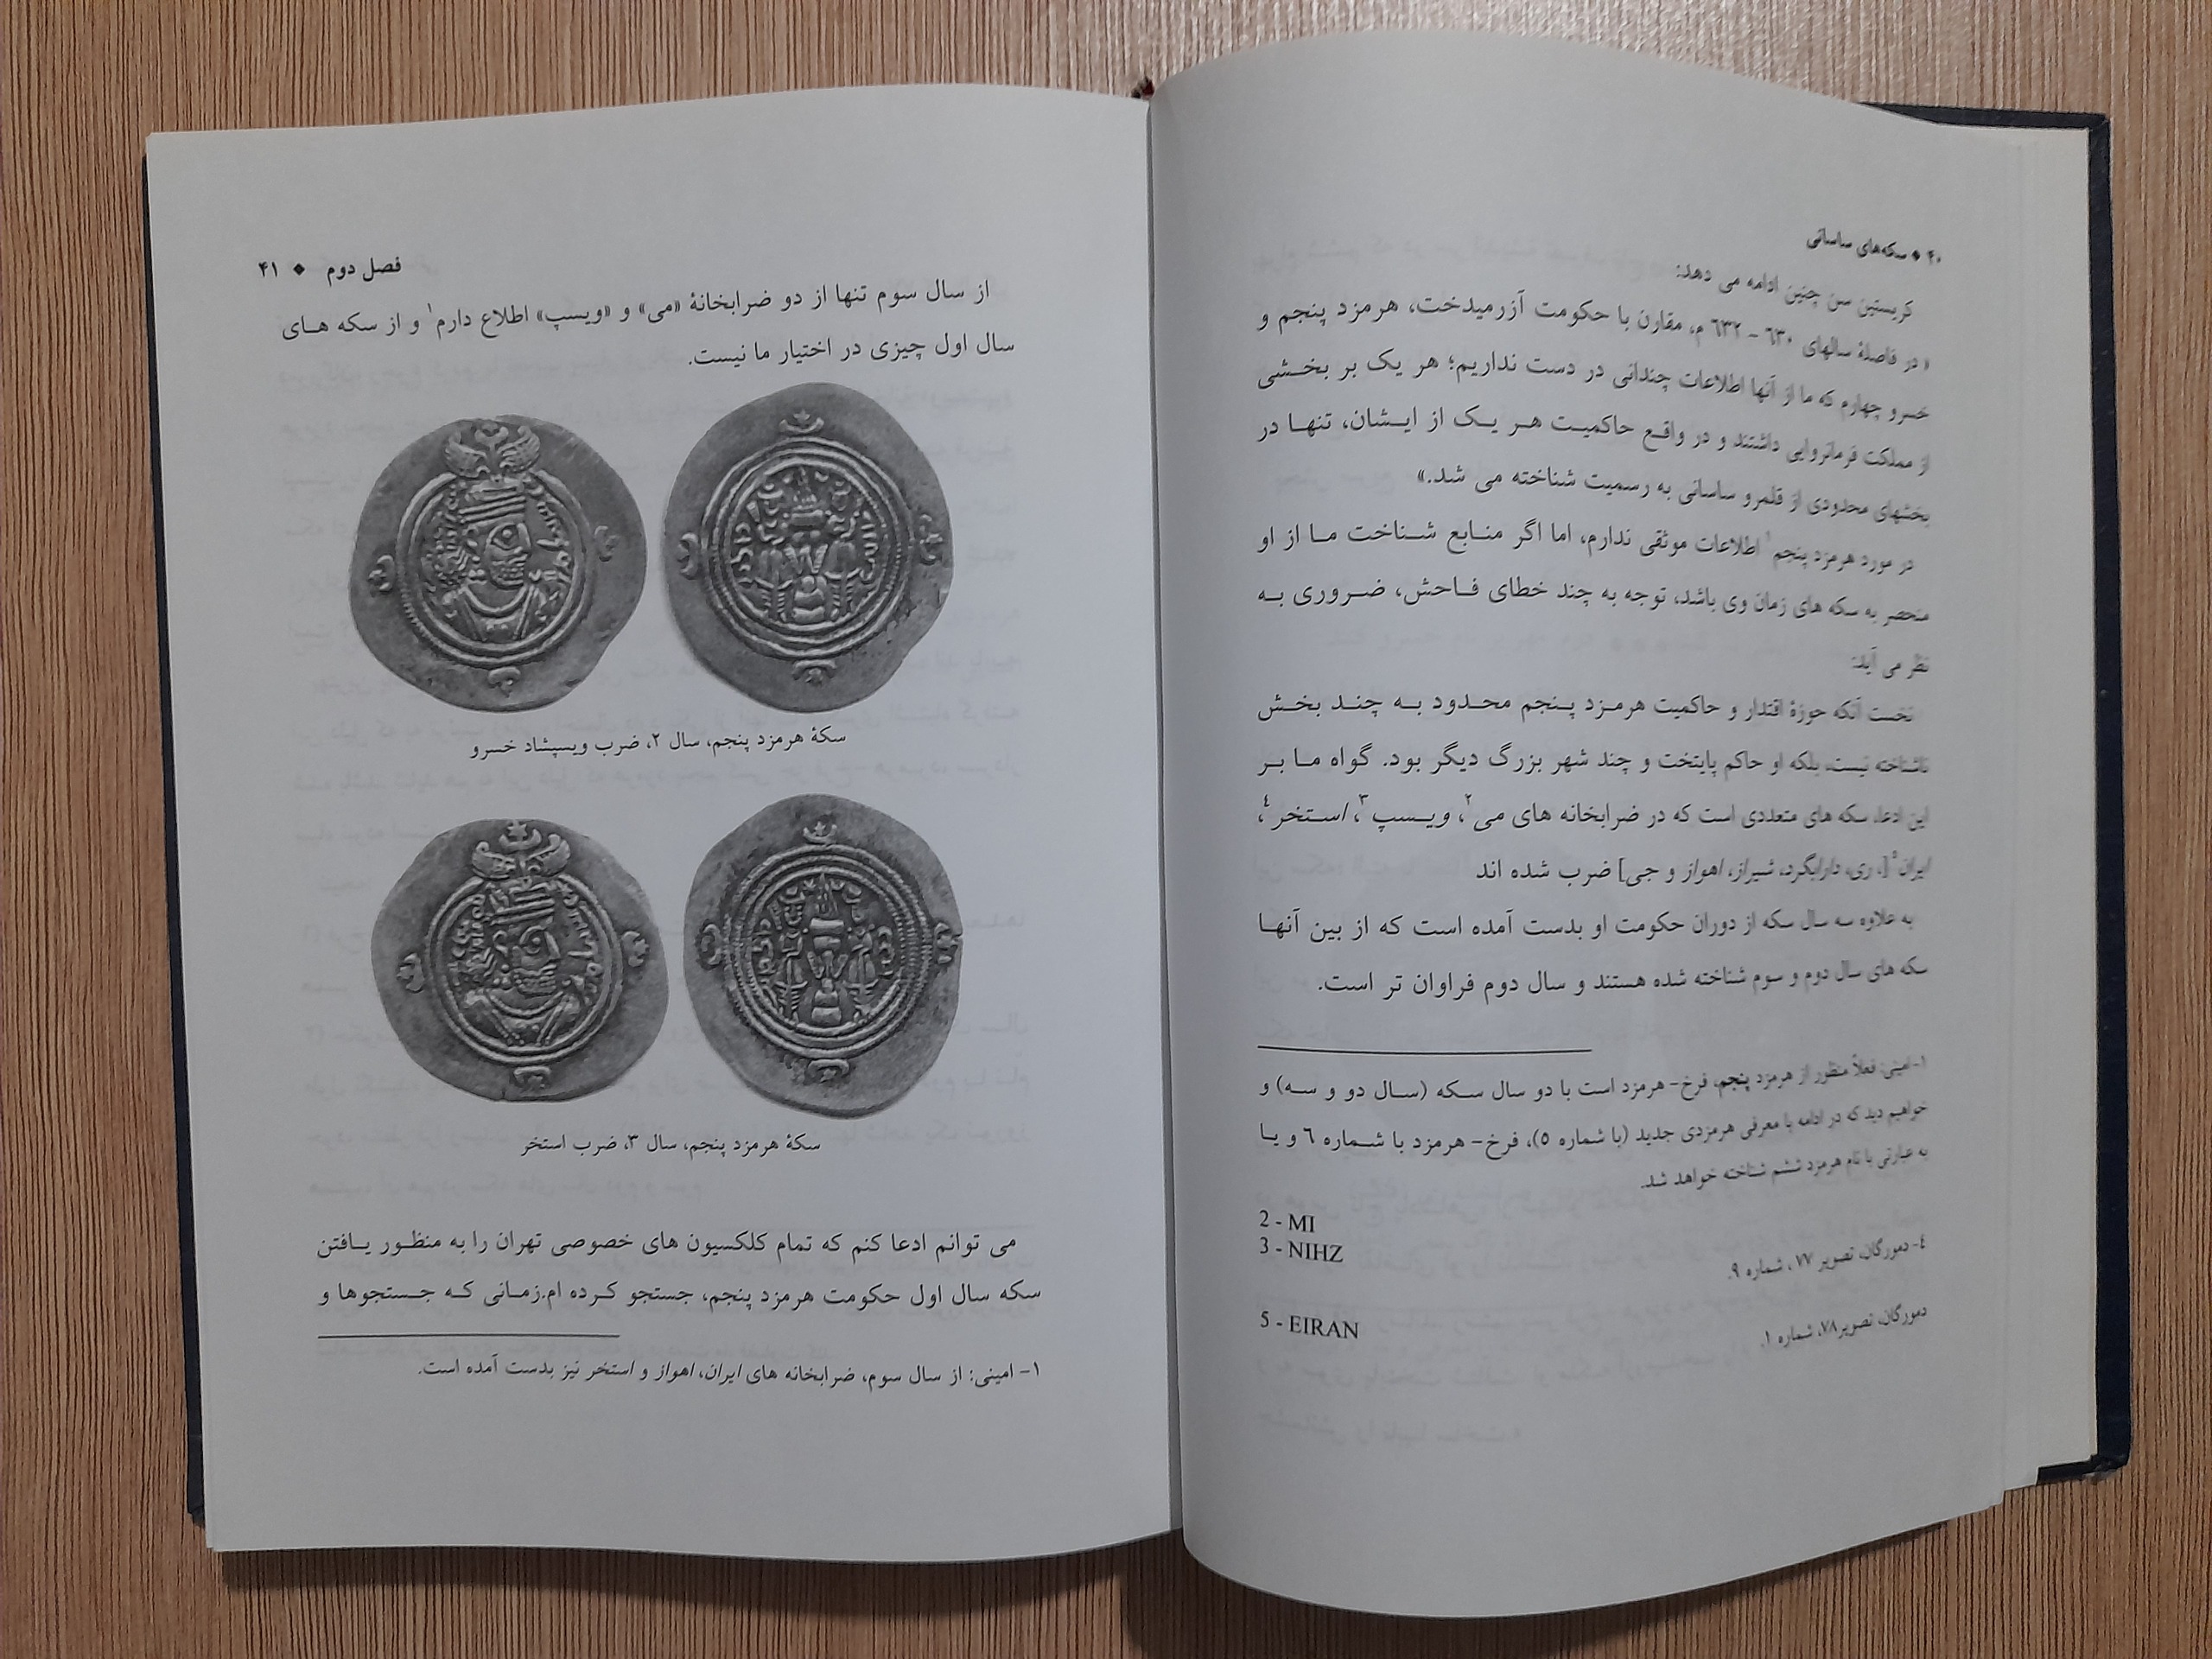 ۴۰ ◆ سکه‌های ساسانی
کریستین سن چنین ادامه می دهد:
« در فاصلهٔ سالهای ٦٣٠ – ٦٣٢ م، مقارن با حکومت آزرمیدخت، هرمزد پنجم و
خسرو چهارم که ما از آنها اطلاعات چندانی در دست نداریم؛ هر یک بر بخشی
از مملکت فرمانروایی داشتند و در واقع حاکمیت هر یک از ایشان، تنها در
بخشهای محدودی از قلمرو ساسانی به رسمیت شناخته می شد.»
در مورد هرمزد پنجم¹ اطلاعات موثقی ندارم، اما اگر منابع شناخت ما از او
منحصر به سکه های زمان وی باشد، توجه به چند خطای فاحش، ضروری به
نظر می آید:
نخست آنکه حوزهٔ اقتدار و حاکمیت هرمزد پنجم محدود به چند بخش
ناشناخته نیست، بلکه او حاکم پایتخت و چند شهر بزرگ دیگر بود. گواه ما بر
این ادعا، سکه های متعددی است که در ضرابخانه های می²، ویسپ³، استخر⁴،
ایران⁵ [، ری، دارابگرد، شیراز، اهواز و جی] ضرب شده اند
به علاوه سه سال سکه از دوران حکومت او بدست آمده است که از بین آنها
سکه های سال دوم و سوم شناخته شده هستند و سال دوم فراوان تر است.
۱- امینی: فعلاً منظور از هرمزد پنجم، فرخ- هرمزد است با دو سال سکه (سال دو و سه) و
خواهیم دید که در ادامه با معرفی هرمزدی جدید (با شماره ٥)، فرخ- هرمزد با شماره ٦ و یا
به عبارتی با نام هرمزد ششم شناخته خواهد شد.
2 - MI
3 - NIHZ
٤- دمورگان، تصویر ۷۷، شماره ۹.
5 - EIRAN
دمورگان، تصویر۷۸، شماره ۱.
فصل دوم ◆ ۴۱
از سال سوم تنها از دو ضرابخانهٔ «می» و «ویسپ» اطلاع دارم¹ و از سکه های
سال اول چیزی در اختیار ما نیست.
سکهٔ هرمزد پنجم، سال ۲، ضرب ویسپشاد خسرو
سکهٔ هرمزد پنجم، سال ۳، ضرب استخر
می توانم ادعا کنم که تمام کلکسیون های خصوصی تهران را به منظور یافتن
سکه سال اول حکومت هرمزد پنجم، جستجو کرده ام.زمانی که جستجوها و
۱- امینی: از سال سوم، ضرابخانه های ایران، اهواز و استخر نیز بدست آمده است.